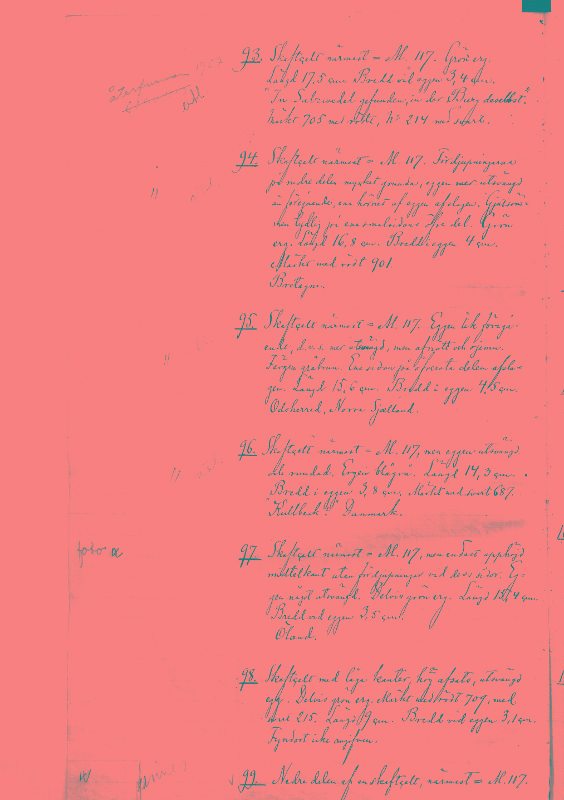 93. Skaftcelt närmast = M. 117. Grön erg.
Längd 17,5 cm. Bredd vid eggen 3,4 cm.
"In Salzwedel gefunden, in der Burg daselbst".
Märkt 705 med rödt, № 214 med svart.
94. Skaftcelt närmast = M. 117. Fördjupningarna
på nedre delen mycket grunda, eggen mer utsvängd
än föregående, ena hörnet af eggen afslagen.
tydlig på ena smalsidans öfre del. Grön
erg. Längd 16,8 cm. Bredd i eggen 4 cm.
Märkt med rödt 901
Bretagne.
95. Skaftcelt närmast = M. 117. Eggen lik föregå-
ende, d.v.s. mer utsvängd, men afnött och ojämn.
Färgen gråbrun. Ena sidan på öfversta delen afsla-
gen. Längd 15,6 cm. Bredd i eggen 4,5 cm.
Odsherred, Norra Sjælland.
96. Skaftcelt närmast = M. 117, men eggen utsvängd
och rundad. Ergen blågrå. Längd 14,3 cm.
Bredd i eggen 3,8 cm. Märkt med svart 687.
"Kullbeck"? Danmark.
foto α
97. Skaftcelt närmast = M. 117, men endast upphöjd
mittelkant utan fördjupningar vid dess sidor. Eg-
gen något utsvängd. Delvis grön erg. Längd 15,4 cm.
Bredd vid eggen 3,5 cm.
Öland.
98. Skaftcelt med låga kanter, hög afsats, utsvängd
egg. Delvis grön erg. Märkt med rödt 707, med
svart 215. Längd 9 cm. Bredd vid eggen 3,1 cm.
Fyndort icke angifven.
99. Nedre delen af en skaftcelt, närmast = M. 117.